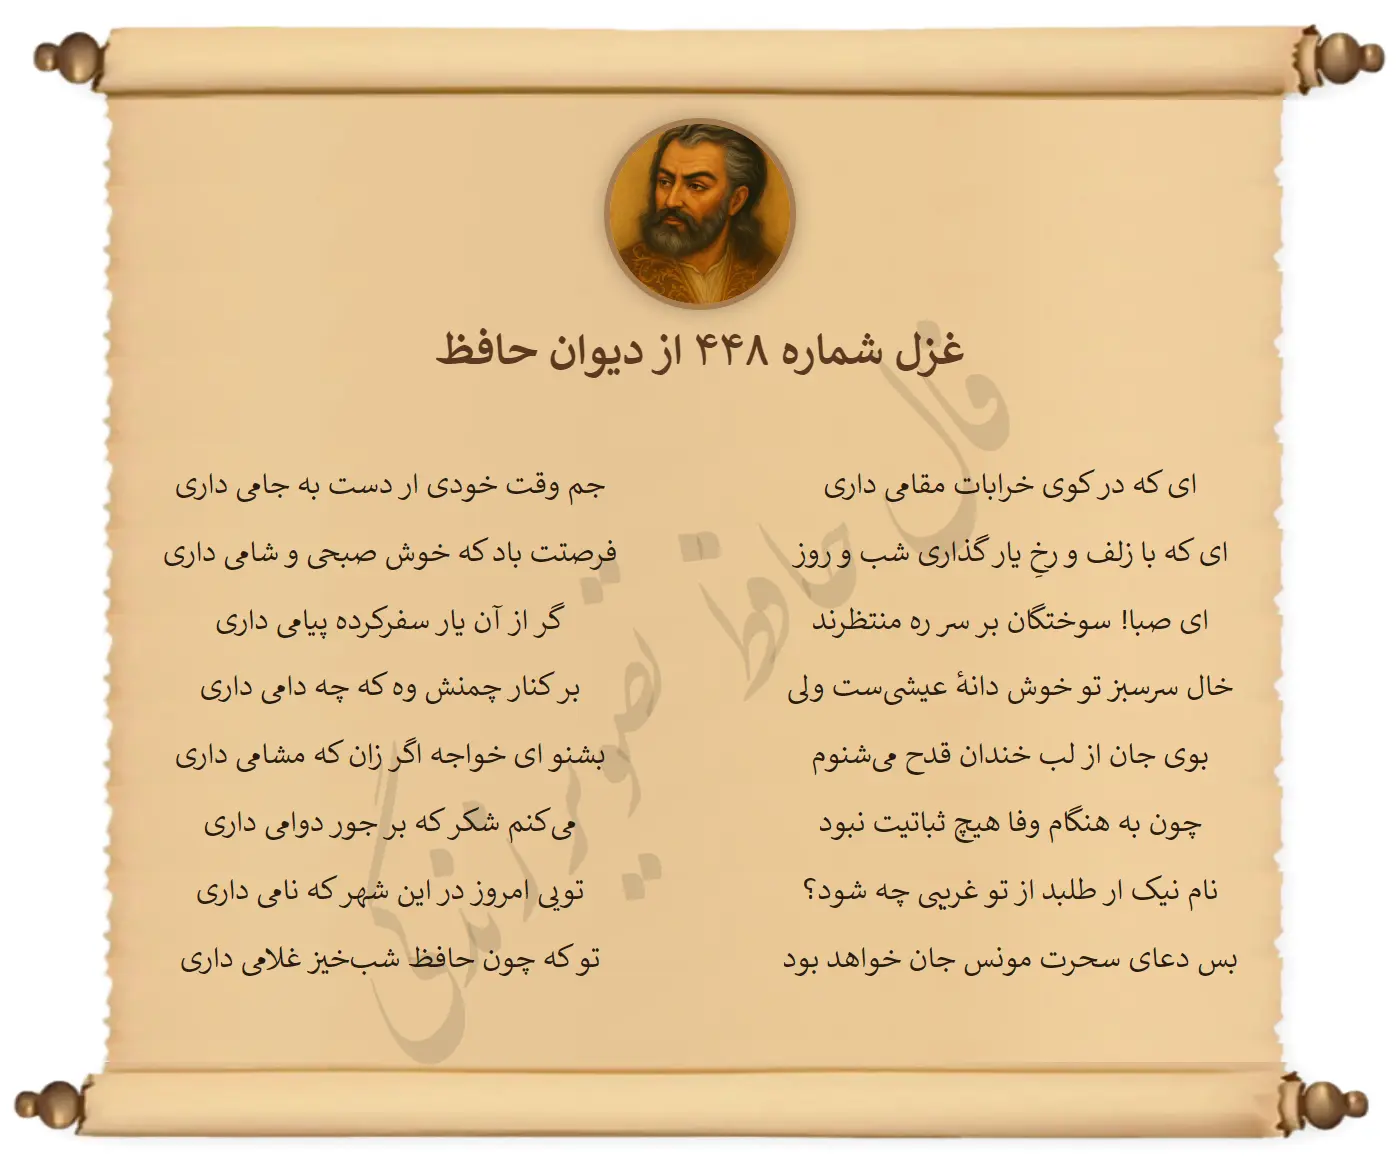 غزل شماره ۴۴۸ از دیوان حافظ
ای که در کوی خرابات مقامی داری
جم وقت خودی ار دست به جامی داری
ای که با زلف و رخِ یار گذاری شب و روز
فرصتت باد که خوش صبحی و شامی داری
ای صبا! سوختگان بر سر ره منتظرند
گر از آن یار سفرکرده پیامی داری
خال سرسبز تو خوش دانهٔ عیشی‌ست ولی
بر کنار چمنش وه که چه دامی داری
بوی جان از لب خندان قدح می‌شنوم
بشنو ای خواجه اگر زان که مشامی داری
چون به هنگام وفا هیچ ثباتیت نبود
می‌کنم شکر که بر جور دوامی داری
نام نیک ار طلبد از تو غریبی چه شود؟
تویی امروز در این شهر که نامی داری
بس دعای سحرت مونس جان خواهد بود
تو که چون حافظ شب‌خیز غلامی داری
فال حافظ تصویر زندگی